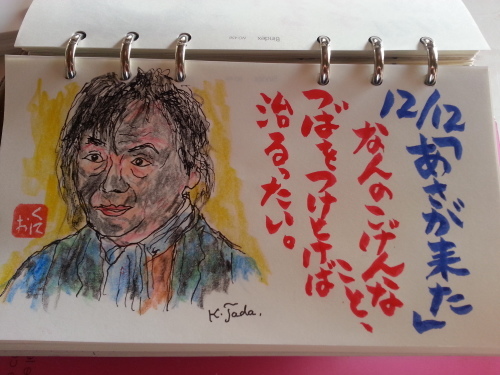 12/12「あさが来た」
なんのこげんな
こと、
つばをつけとけば
治るったい。
くに
お
K.Tada.
Bindex